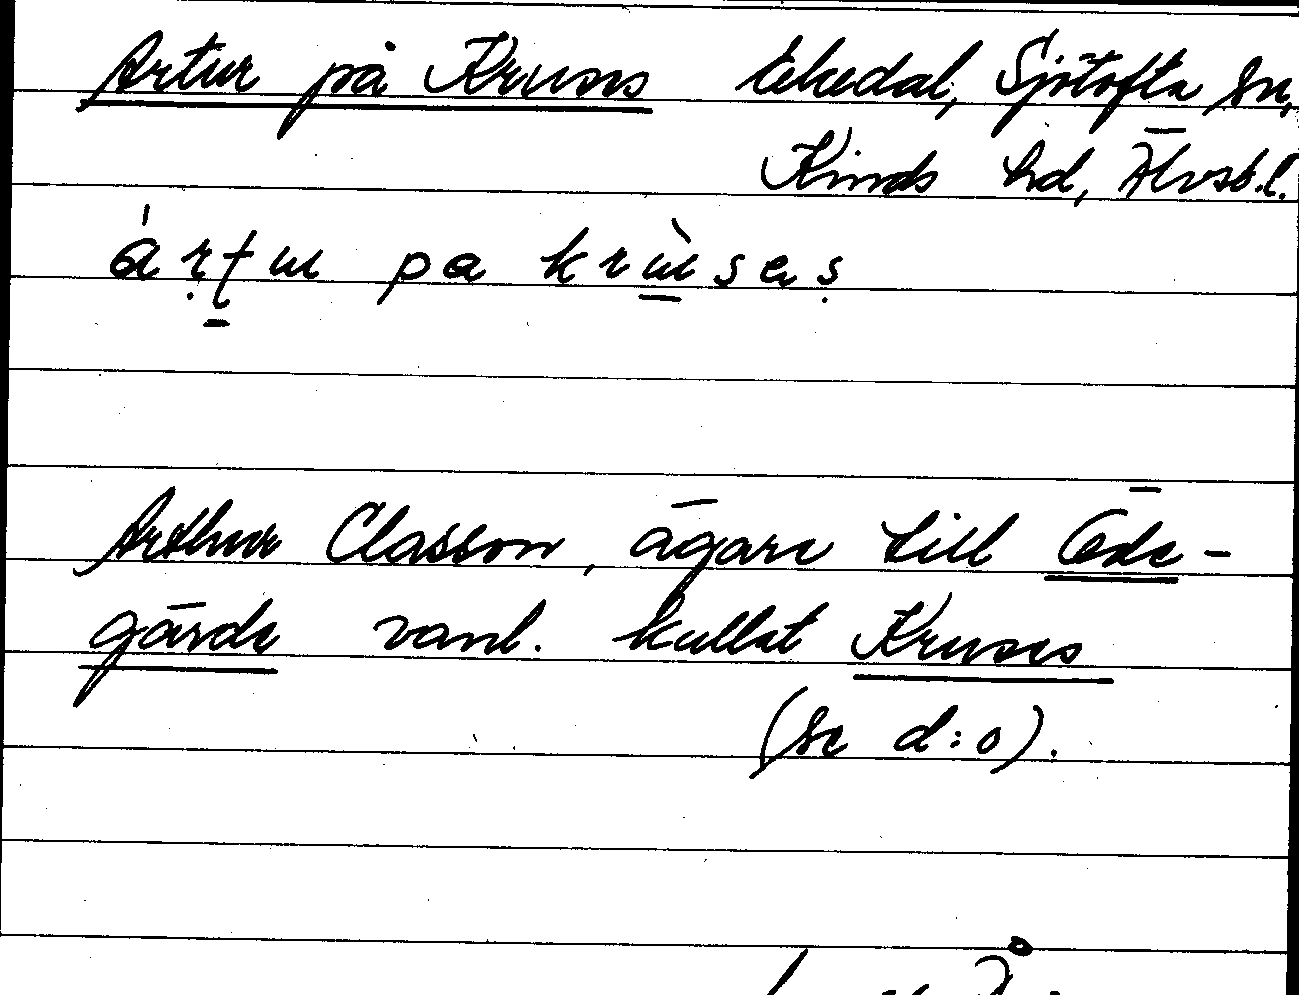 Artur på Kruses Ekedal, Sjötofta sn,
Kinds hd, Älvsb.l.
artu pa kruses
Arthur Classon, ägare till Öde-
gärde vanl. kallat Kruses
(se d:o).